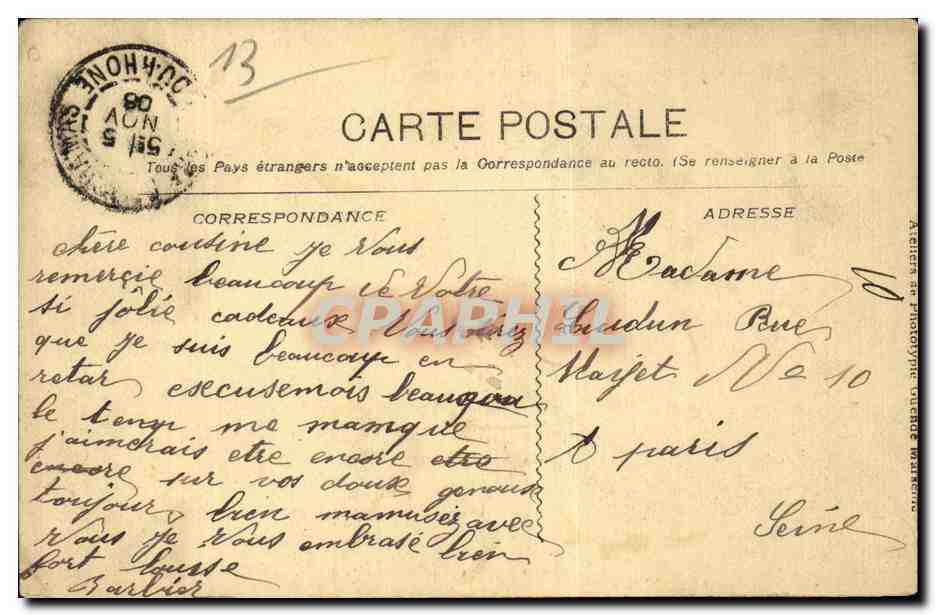 13
DU-RHONE
5
NOV
08
CARTE POSTALE
Tous les Pays étrangers n'acceptent pas la Correspondance au recto. (Se renseigner à la Poste
CORRESPONDANCE
chère cousine je vous
remerçie beaucoup de votre
si jôlie cadeaux vous direz
que je suis beaucoup en
retar excusemois beaucou
le temp me manque
j'aimerais etre encore etre
encore sur vos doux genoux
toujour bien mamusez avec
vous je vous embrase bien
fort
Barbier
ADRESSE
Madame
Rue
No 10
A paris
Seine
10
Ateliers de Phototypie Guende Marseille
CPAPHIL